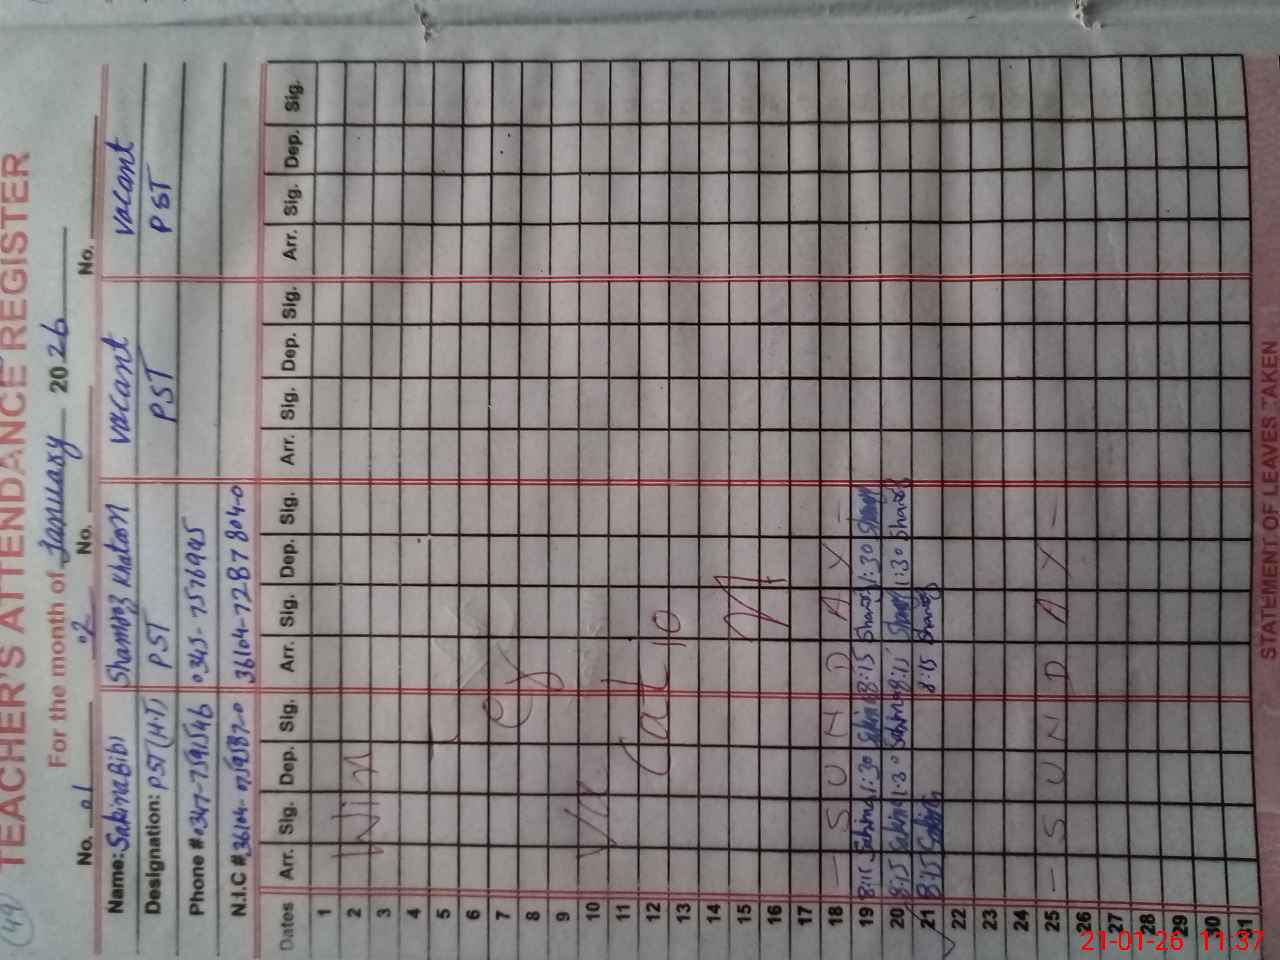 (49)
TEACHER'S ATTENDANCE REGISTER
For the month of January 2026
No. 01 No. 02 No. No.
Name: Sakina Bibi Shamroz Khatoon vacant vacant
Designation: PST (H.T) PST PST PST
Phone # 0347-7591546 0345-7576945
N.I.C # 36104-0759587-0 36104-7287804-0
Dates Arr. Sig. Dep. Sig. Arr. Sig. Dep. Sig. Arr. Sig. Dep. Sig. Arr. Sig. Dep. Sig.
1
2 Win
3
4
5
6
7
8
9
10
11
12
13
14
15
16
17
18 - S U N D A Y -
19 8:15 Sakina 1:30 Sakina 8:15 Shamroz 1:30
20 8:15 Sakina 1:30 Sakina 8:15 1:30 Shamroz
21 8:15 Sakina 8:15 Shamroz
22
23
24
25 - S U N D A Y -
26
27
28
29
30
31
STATEMENT OF LEAVES TAKEN
21-01-26 11:37